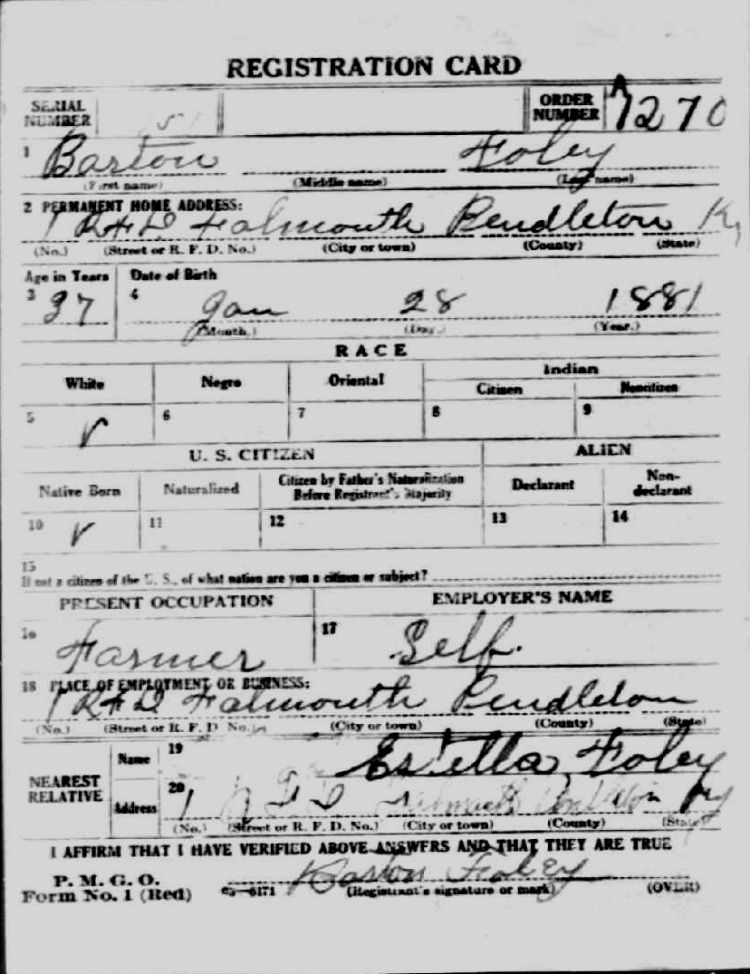 REGISTRATION CARD
SERIAL NUMBER 51 ORDER NUMBER A 7270
1 Barton Foley
(First name) (Middle name) (Last name)
2 PERMANENT HOME ADDRESS:
1 RFD Falmouth Pendleton Ky
(No.) (Street or R. F. D. No.) (City or town) (County) (State)
Age in Years Date of Birth
3 37 4 Jan 28 1881
(Month.) (Day.) (Year.)
RACE
White Negro Oriental Indian
Citizen Noncitizen
5 ✓ 6 7 8 9
U. S. CITIZEN ALIEN
Native Born Naturalized Citizen by Father's Naturalization Before Registrant's Majority Declarant Non-declarant
10 ✓ 11 12 13 14
15
If not a citizen of the U. S., of what nation are you a citizen or subject?
PRESENT OCCUPATION EMPLOYER'S NAME
16 Farmer 17 Self.
18 PLACE OF EMPLOYMENT OR BUSINESS:
1 RFD Falmouth Pendleton
(No.) (Street or R. F. D. No.) (City or town) (County) (State)
NEAREST RELATIVE
Name 19 Estella Foley
Address 20 1 RFD Falmouth Pendleton Ky
(No.) (Street or R. F. D. No.) (City or town) (County) (State)
I AFFIRM THAT I HAVE VERIFIED ABOVE ANSWERS AND THAT THEY ARE TRUE
P. M. G. O.
Form No. 1 (Red) 03—6171 Barton Foley
(Registrant's signature or mark) (OVER)